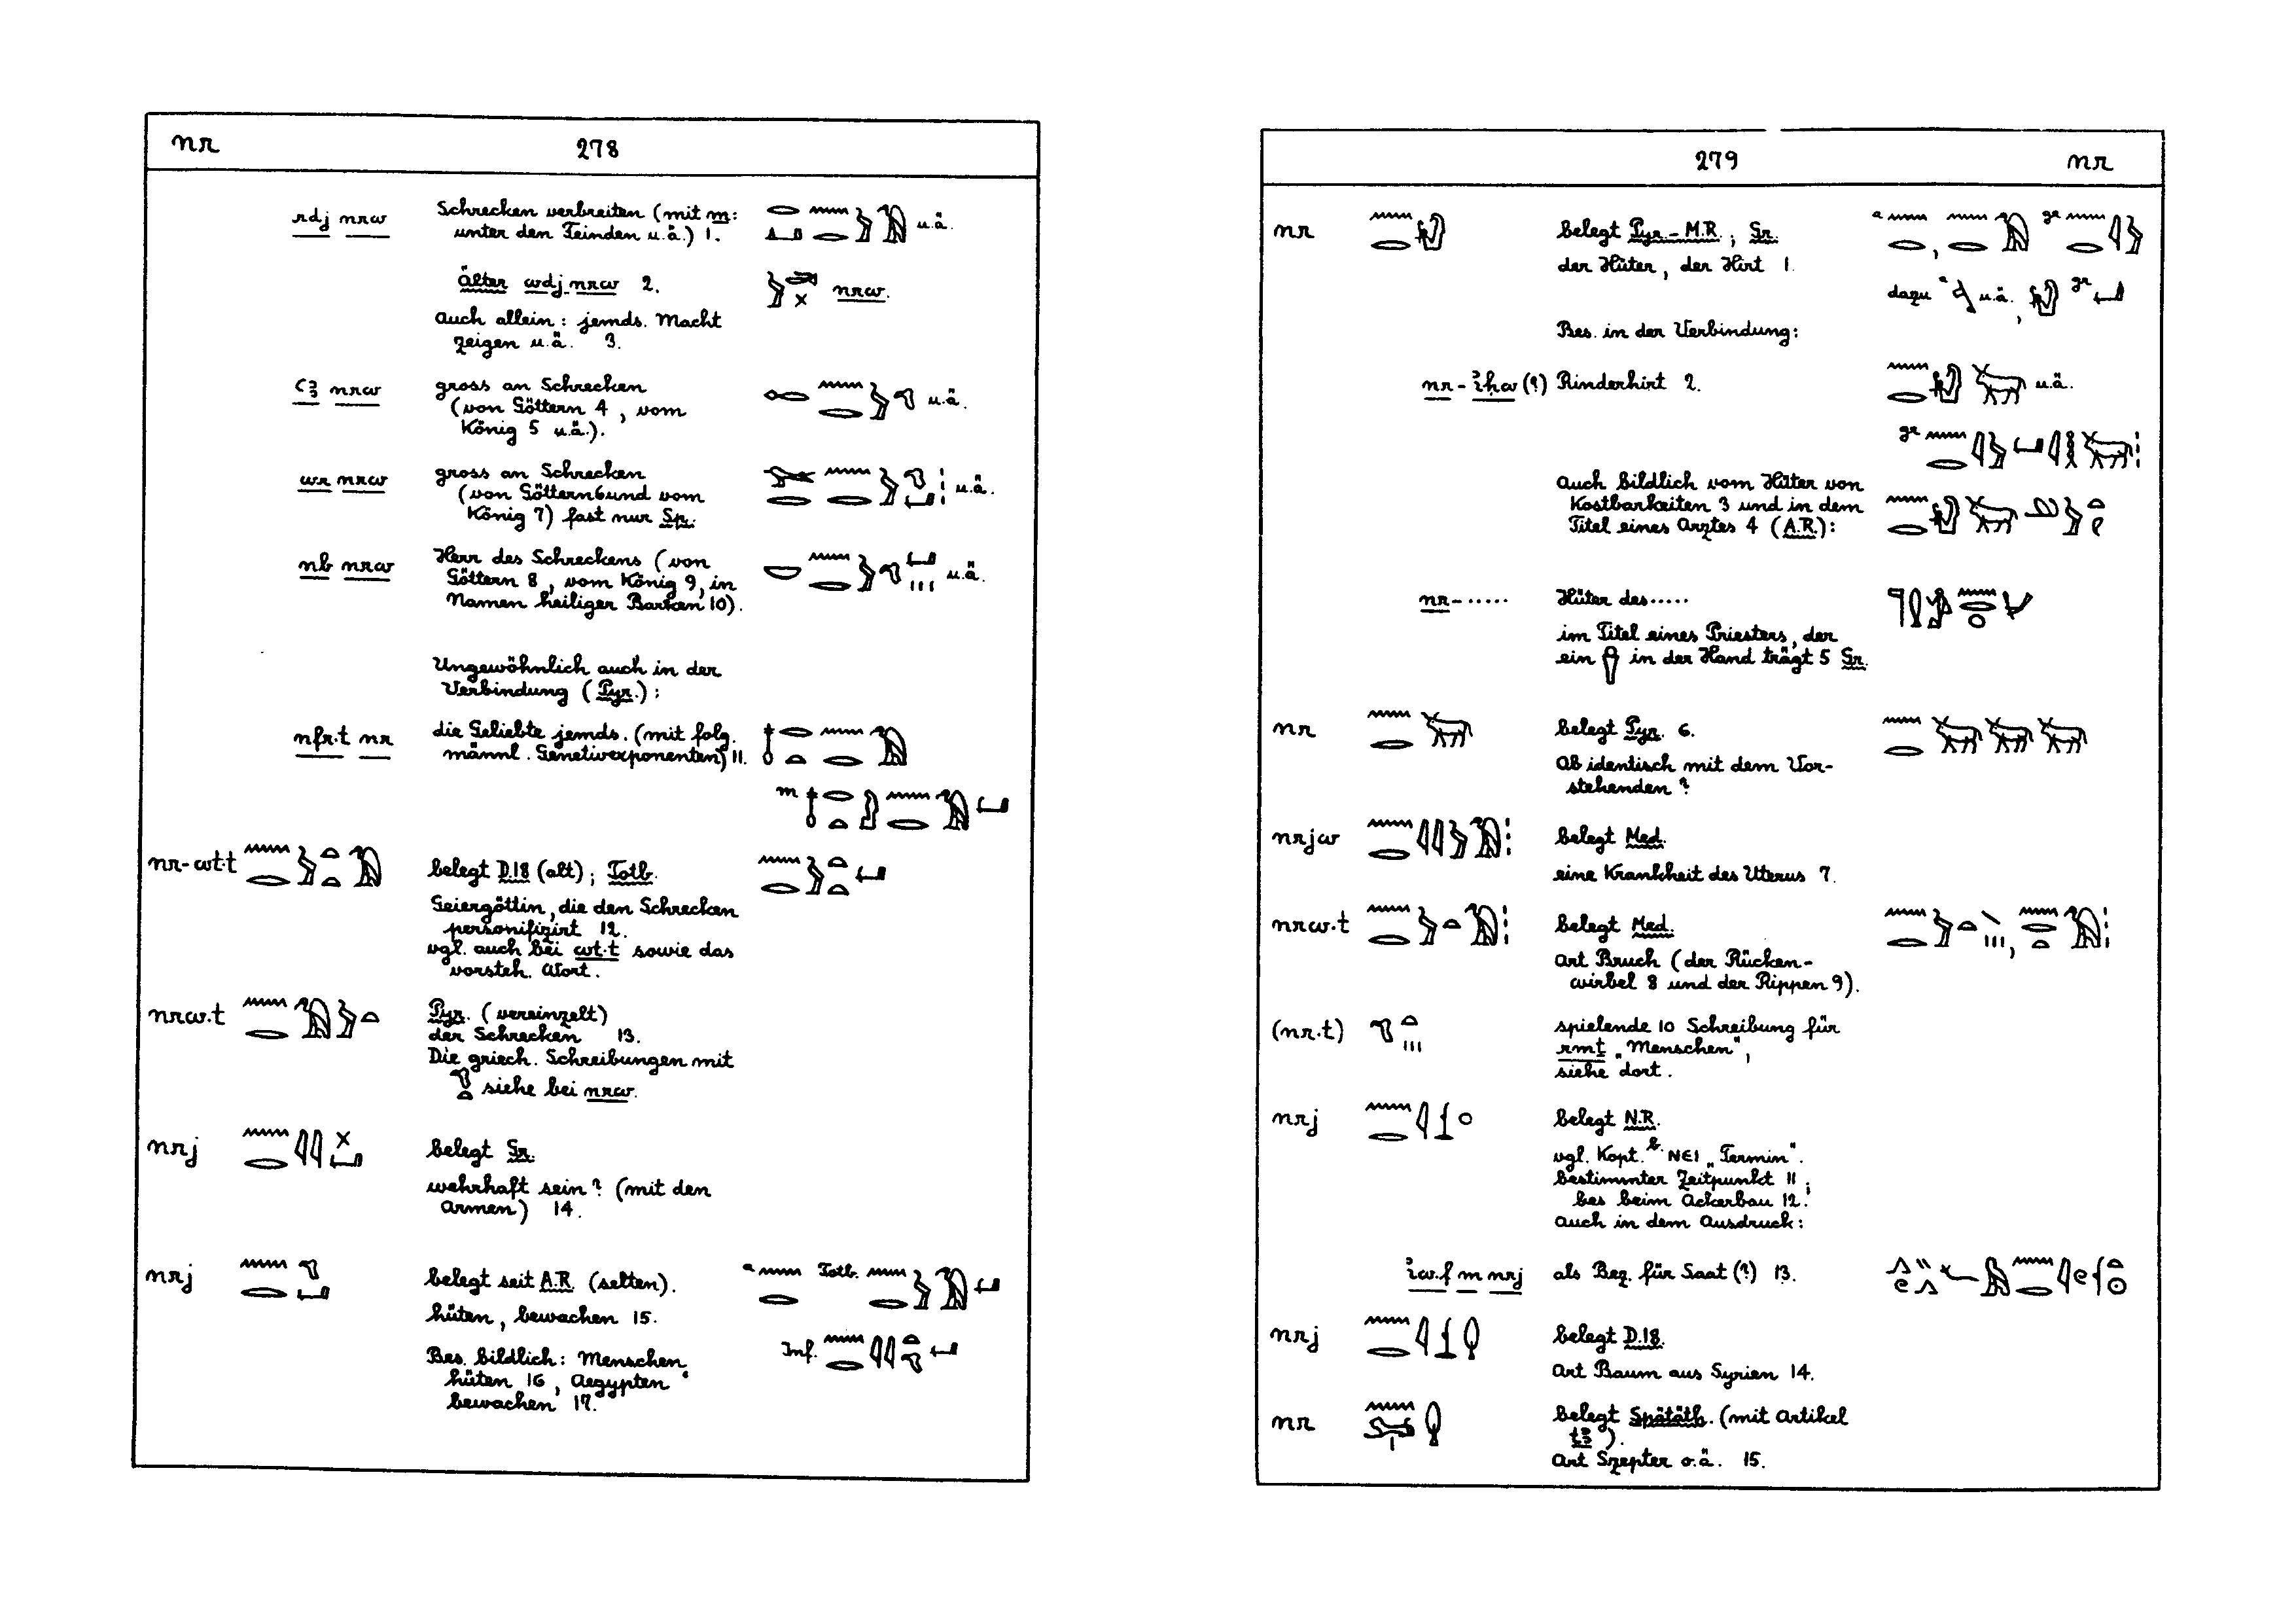 nr 278
rdj nrw Schrecken verbreiten (mit m:
unter den Feinden u.ä.) 1. u.ä.
Älter wdj nrw 2. nrw.
Auch allein: jemds. Macht
zeigen u.ä. 3.
ꜥꜣ nrw gross an Schrecken
(von Göttern 4, vom
König 5 u.ä.). u.ä.
wr nrw gross an Schrecken
(von Göttern 6 und vom
König 7) fast nur Sp. u.ä.
nb nrw Herr des Schreckens (von
Göttern 8, vom König 9, in
Namen heiliger Barken 10). u.ä.
Ungewöhnlich auch in der
Verbindung (Pyr.):
nfr.t nr die Geliebte jemds. (mit folg.
männl. Genetivexponenten) 11.
m
nr-wt.t belegt D.18 (alt); Totb.
Geiergöttin, die den Schrecken
personifizirt 12.
vgl. auch bei wt.t sowie das
vorsteh. Wort.
nrw.t Pyr. (vereinzelt)
der Schrecken 13.
Die griech. Schreibungen mit
siehe bei nrw.
nrj belegt Gr.
wehrhaft sein? (mit den
Armen) 14.
nrj belegt seit A.R. (selten). a Totb.
hüten, bewachen 15.
Inf.
Bes. bildlich: Menschen
hüten 16, Aegypten
bewachen 17.
279 nr
nr belegt Pyr.-M.R.; Gr. a , gr
der Hüter, der Hirt 1. dazu a u.ä., gr
Bes. in der Verbindung:
nr-iḥw (?) Rinderhirt 2. u.ä.
gr
Auch bildlich vom Hüter von
Kostbarkeiten 3 und in dem
Titel eines Arztes 4 (A.R.):
nr-..... Hüter des.....
im Titel eines Priesters, der
ein in der Hand trägt 5 Gr.
nr belegt Pyr. 6.
Ob identisch mit dem Vor-
stehenden?
nrjw belegt Med.
eine Krankheit des Uterus 7.
nrw.t belegt Med. ,
Art Bruch (der Rücken-
wirbel 8 und der Rippen 9).
(nr.t) spielende 10 Schreibung für
rmṯ „Menschen",
siehe dort.
nrj belegt N.R.
vgl. Kopt. b. ⲚⲈⲒ „Termin".
bestimmter Zeitpunkt 11;
bes beim Ackerbau 12.
Auch in dem Ausdruck:
iw.f m nrj als Bez. für Saat (?) 13.
nrj belegt D.18.
Art Baum aus Syrien 14.
nr belegt Spätäth. (mit Artikel
tꜣ).
Art Szepter o.ä. 15.